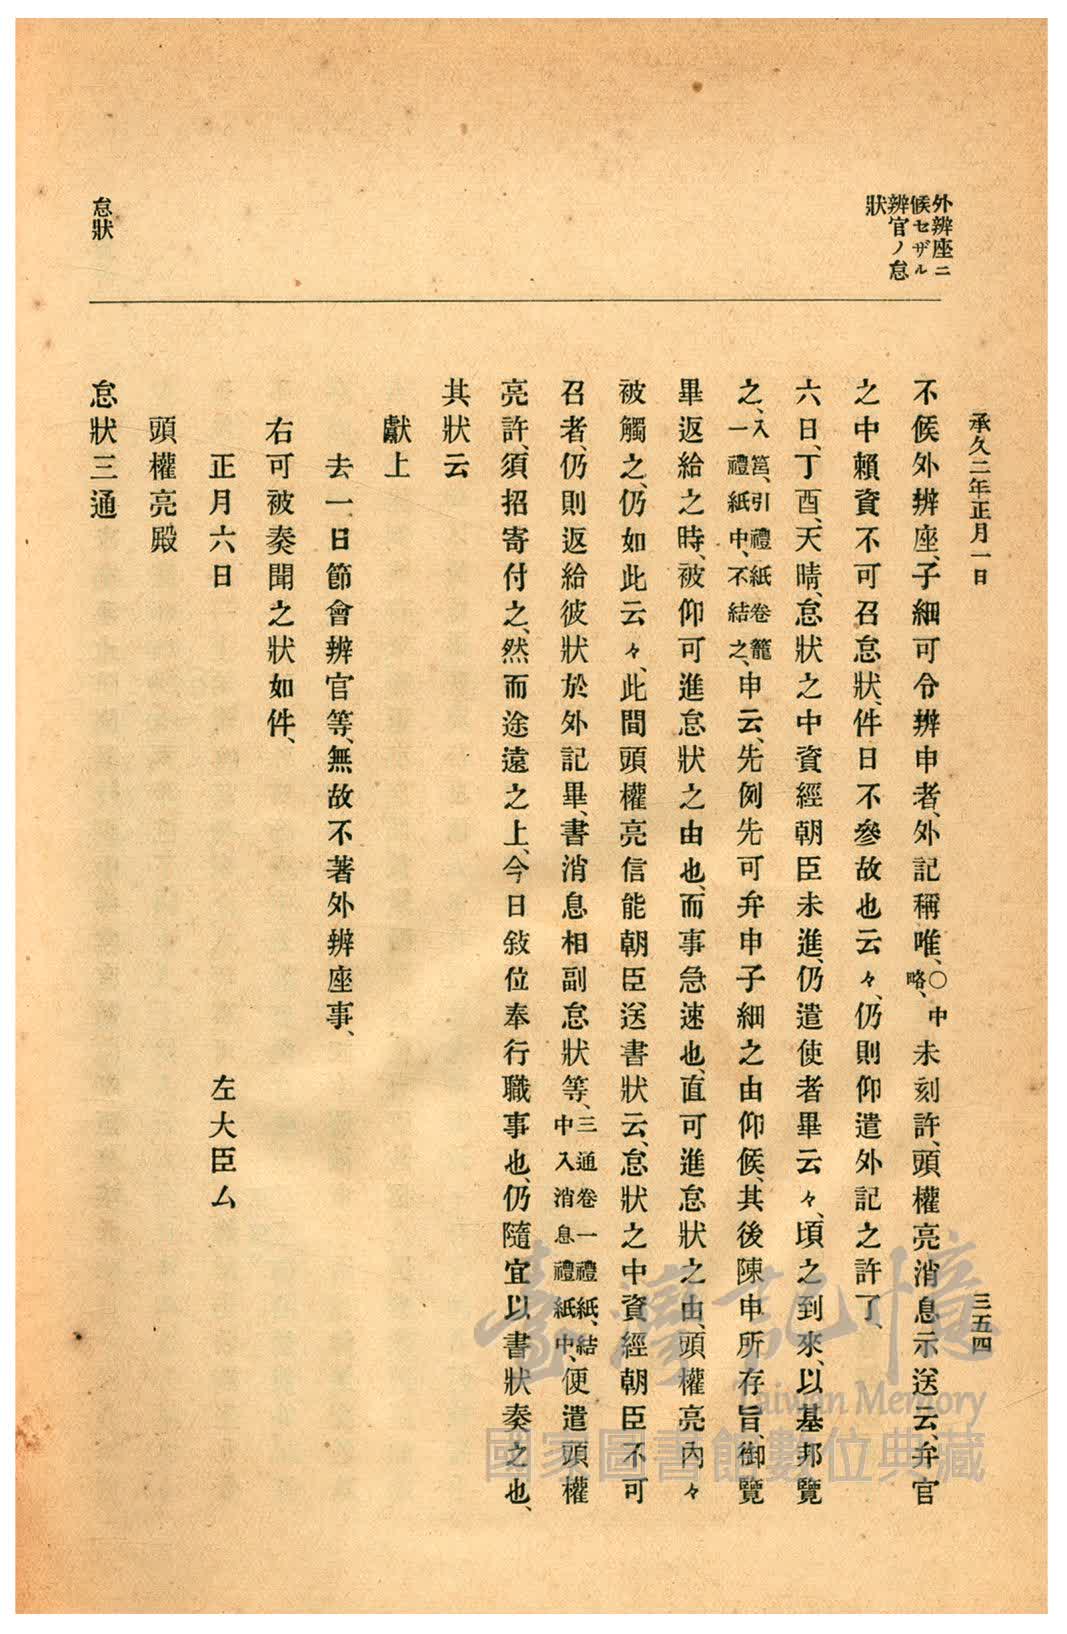 承久二年正月一日
三五四
外辨座ニ
候セザル
辨官ノ怠
狀
不候外辨座、子細可令辨申者、外記稱唯、○中略、未刻許、頭權亮消息示送云、弁官
之中賴資不可召怠狀、件日不參故也云々、仍則仰遣外記之許了、
六日、丁酉、天晴、怠狀之中資經朝臣未進、仍遣使者畢云々、頃之到來、以基邦覽
之、入筥、引禮紙卷籠一禮紙中、不結之、申云、先例先可弁申子細之由仰候、其後陳申所存旨、御覽
畢返給之時、被仰可進怠狀之由也、而事急速也、直可進怠狀之由、頭權亮內々
被觸之、仍如此云々、此間頭權亮信能朝臣送書狀云、怠狀之中資經朝臣不可
召者、仍則返給彼狀於外記畢、書消息相副怠狀等、三通卷一禮紙、結中入消息禮紙中、便遣頭權
亮許、須招寄付之、然而途遠之上、今日敍位奉行職事也、仍隨宜以書狀奏之也、
其狀云
獻上
去一日節會辨官等、無故不著外辨座事、
右可被奏聞之狀如件、
正月六日　左大臣ム
頭權亮殿
怠狀
怠狀三通
臺灣記憶
Taiwan Memory
國家圖書館數位典藏